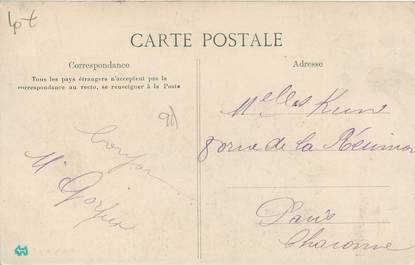 CARTE POSTALE
Correspondance
Tous les pays étrangers n'acceptent pas la
correspondance au recto, se renseigner à la Poste
Adresse
Melles
rue de la Réunion
Paris
Charonne